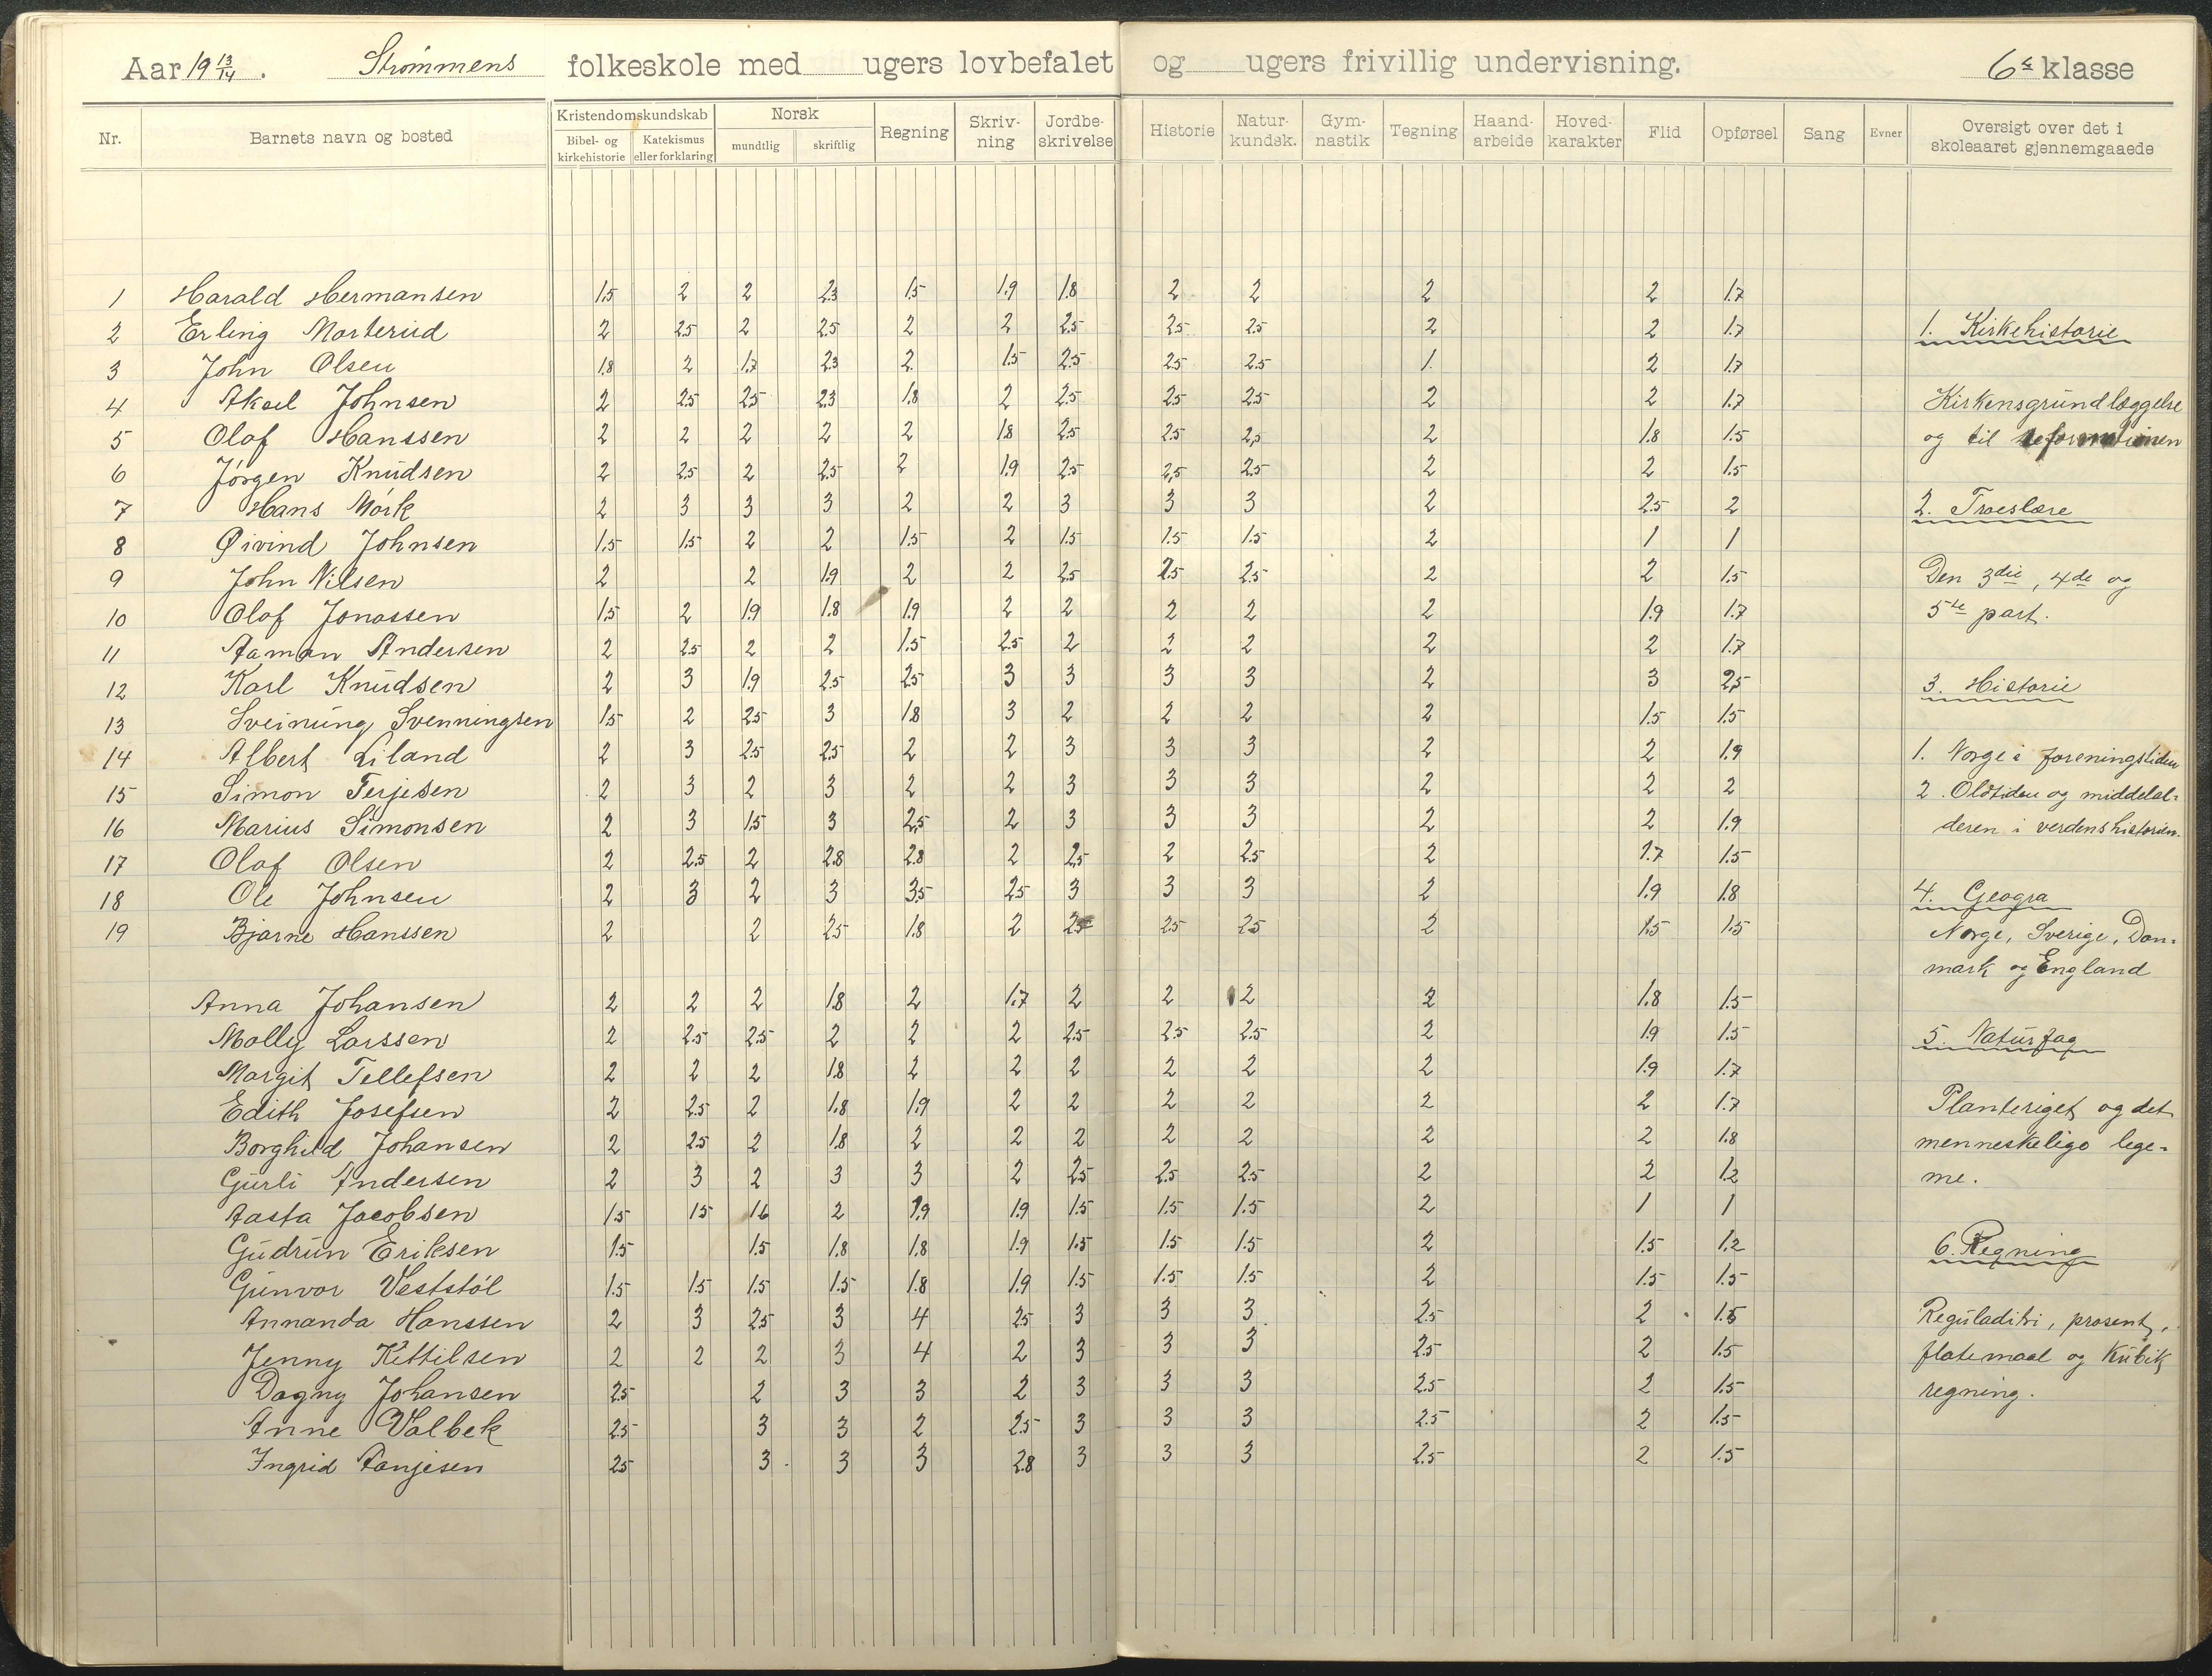 Aar 19 13/14 . Strømmens folkeskole med ugers lovbefalet og ugers frivillig undervisning. 6te klasse
Nr. Barnets navn og bosted Kristendomskundskab Bibel- og kirkehistorie Katekismus eller forklaring Norsk mundtlig skriftlig Regning Skriv-ning Jordbe-skrivelse Historie Natur-kundsk. Gym-nastik Tegning Haand-arbeide Hoved-karakter Flid Opførsel Sang Evner Oversigt over det i skoleaaret gjennemgaaede
1 Harald Hermansen 1.5 2 2 2.3 1.5 1.9 1.8 2 2 2 2 1.7
2 Erling Morterud 2 2.5 2 2.5 2 2 2.5 2.5 2.5 2 2 1.7 1. Kirkehistorie
3 John Olsen 1.8 2 1.7 2.3 2. 1.5 2.5 2.5 2.5 1. 2 1.7
4 Aksel Johnsen 2 2.5 2.5 2.3 1.8 2 2.5 2.5 2.5 2 2 1.7 Kirkensgrundlæggelse
5 Olaf Hanssen 2 2 2 2 2 1.8 2.5 2.5 2,5 2 1.8 1.5 og til reformationen
6 Jørgen Knudsen 2 2.5 2 2.5 2 1.9 2.5 2,5 2.5 2 2 1.5
7 Hans Mörk 2 3 3 3 2 2 3 3 3 2 2.5 2 2. Troeslære
8 Øivind Johnsen 1.5 1.5 2 2 1.5 2 1.5 1.5 1.5 2 1 1
9 John Nilsen 2 2 1.9 2 2 2.5 2.5 2.5 2 2 1.5 Den 3die, 4de og
10 Olaf Jonassen 1.5 2 1.9 1.8 1.9 2 2 2 2 2 1.9 1.7 5te part.
11 Aaman Andersen 2 2.5 2 2 1.5 2.5 2 2 2 2 2 1.7
12 Karl Knudsen 2 3 1.9 2.5 2.5 3 3 3 3 2 3 2,5 3. Historie
13 Sveinung Svenningsen 1.5 2 2.5 3 1.8 3 2 2 2 2 1.5 1.5
14 Albert Liland 2 3 2.5 2.5 2 2 3 3 3 2 2 1.9 1. Norge i foreningstiden
15 Simon Terjesen 2 3 2 3 2 2 3 3 3 2 2 2 2. Oldtiden og middelal-
16 Marius Simonsen 2 3 1.5 3 2,5 2 3 3 3 2 2 1.9 deren i verdenshistorien.
17 Olaf Olsen 2 2.5 2 2.8 2.8 2 2,5 2 2.5 2 1.7 1.5
18 Ole Johnsen 2 3 2 3 3.5 2.5 3 3 3 2 1.9 1.8 4. Geogra
19 Bjarne Hanssen 2 2 2.5 1.8 2 2.5 2.5 2.5 2 1.5 1.5 Norge, Sverige, Dan-
mark og England
Anna Johansen 2 2 2 1.8 2 1.7 2 2 2 2 1.8 1.5
Molly Larssen 2 2.5 2.5 2 2 2 2.5 2.5 2.5 2 1.9 1.5 5. Naturfag
Margit Tellefsen 2 2 2 1.8 2 2 2 2 2 2 1.9 1.7
Edith Josefsen 2 2.5 2 1.8 1.9 2 2 2 2 2 2 1.7 Planteriget og det
Borghild Johansen 2 2.5 2 1.8 2 2 2 2 2 2 2 1.8 menneskelige lege-
Gurli Andersen 2 3 2 3 3 2 2.5 2.5 2.5 2 2 1.2 me.
Aasta Jacobsen 1.5 1.5 1.6 2 1.9 1.9 1.5 1.5 1.5 2 1 1
Gudrun Eriksen 1.5 1.5 1.8 1.8 1.9 1.5 1.5 1.5 2 1.5 1.2 6. Regning
Gunvor Veststöl 1.5 1.5 1.5 1.5 1.8 1.9 1.5 1.5 1.5 2 1.5 1.5
Annanda Hanssen 2 3 2.5 3 4 2.5 3 3 3 2.5 2 1.5 Reguladitri, prosent,
Jenny Kittilsen 2 2 2 3 4 2 3 3 3 2.5 2 1.5 flatemaal og Kubik
Dagny Johansen 2.5 2 3 3 2 3 3 3 2.5 2 1.5 regning.
Anne Valbek 2.5 3 3 2 2.5 3 3 3 2.5 2 1.5
Ingrid Aanjesen 2.5 3 3 3 2.8 3 3 3 2.5 2 1.5